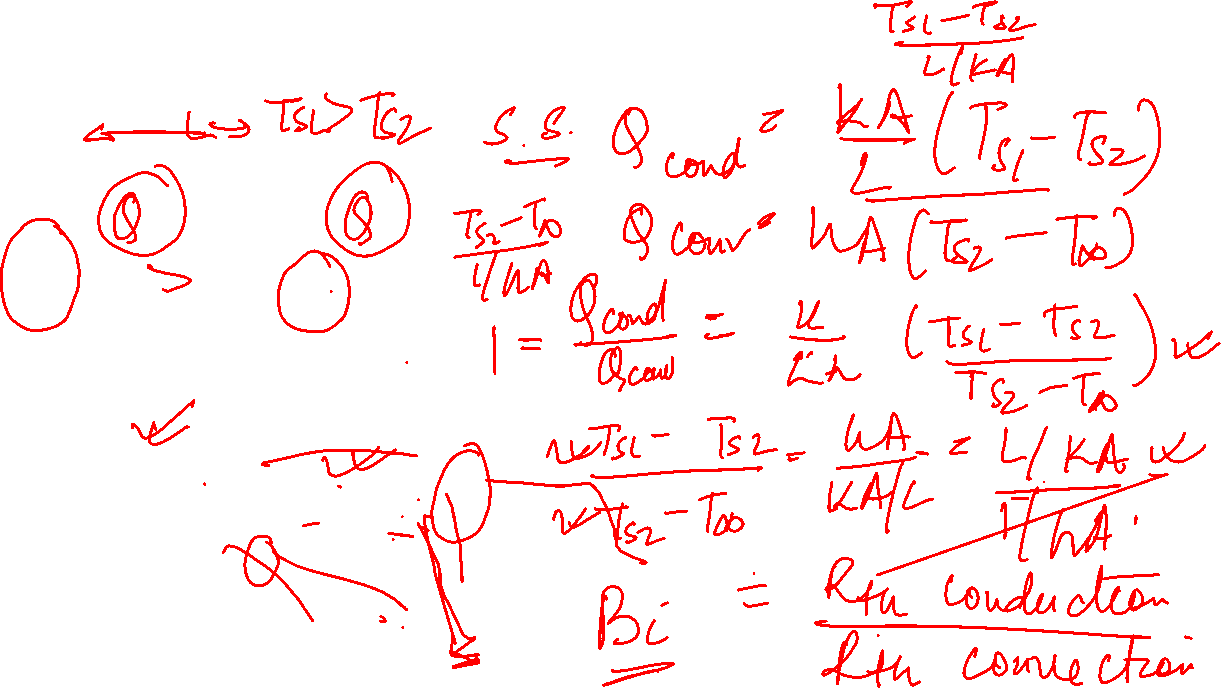 Ts1-Ts2
L/KA
L Ts1>Ts2 S.S. Qcond = KA/L (Ts1-Ts2)
Q Q Ts2-T∞ / 1/hA Qconv = hA(Ts2-T∞)
1 = Qcond/Qconv = k/Lh (Ts1-Ts2 / Ts2-T∞)
Ts1-Ts2 / Ts2-T∞ = hA / KA/L = L/KA / 1/hA
Bi = Rth conduction / Rth convection